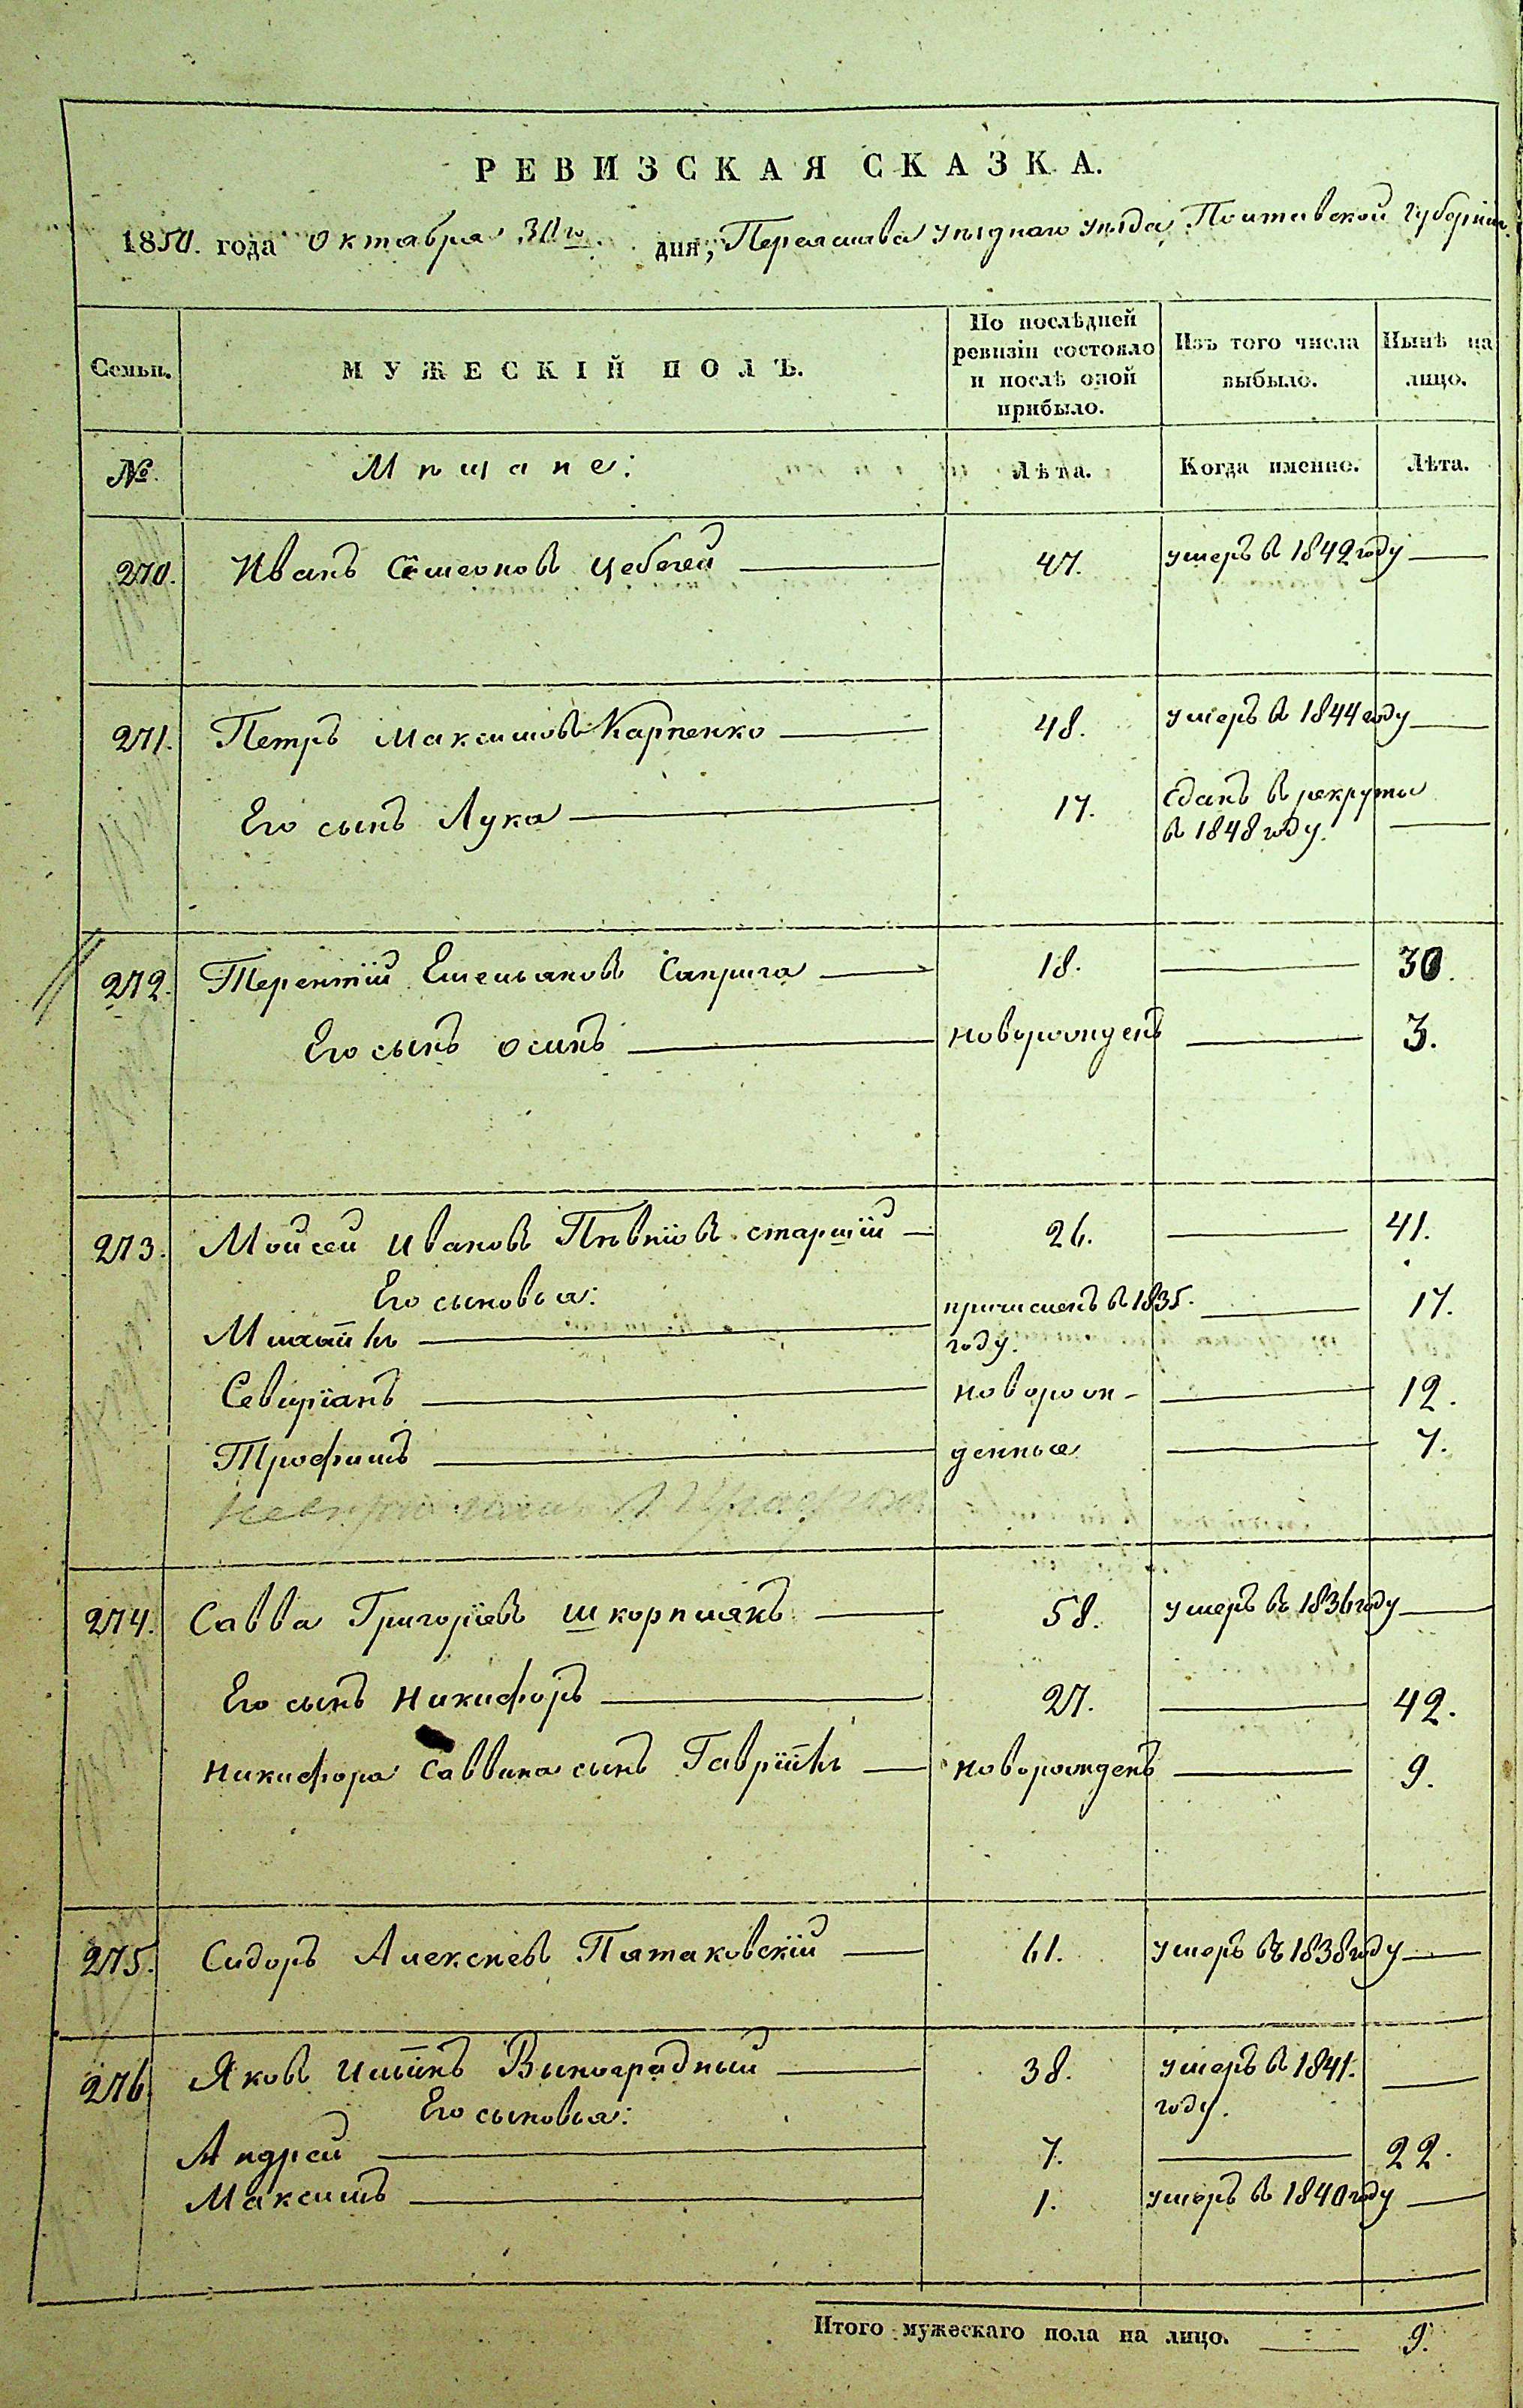 РЕВИЗСКАЯ СКАЗКА.
1850. года Октября 30го дня, Переяслава уѣзднаго уѣзда Полтавской Губерніи.
Семьи. МУЖЕСКІЙ ПОЛЪ. По послѣдней ревизіи состояло и послѣ оной прибыло. Изъ того числа выбыло. Нынѣ на лицо.
№. Мѣщане: Лѣта. Когда именно. Лѣта.
270. Иванъ Семеновъ Цебегей 47. умеръ в 1842 году
271. Петръ Максимовъ Карпенко 48. умеръ в 1844 году
Его сынъ Лука 17. Сданъ в рекруты
в 1848 году.
272. Терентій Емельяновъ Саприга 18. 30.
Его сынъ Осипъ новорожденъ 3.
273. Мойсей Ивановъ Пѣвнѣвъ старшій 26. 41.
Его сыновья:
Михаилъ причисленъ в 1835. 17.
году.
Севиріанъ новорож- 12.
Трофимъ денные 7.
274. Савва Григоріевъ Шкорпилякъ 58. умеръ въ 1836 году
Его сынъ Никифоръ 27. 42.
Никифора Саввина сынъ Гавріилъ новорожденъ 9.
275. Сидоръ Алексѣевъ Пятаковскій 61. умеръ въ 1838 году
276. Яковъ Ильинъ Виноградный 38. умеръ в 1841.
году.
Его сыновья:
Андрей 7. 22.
Максимъ 1. умеръ в 1840 году
Итого мужескаго пола на лицо. 9.